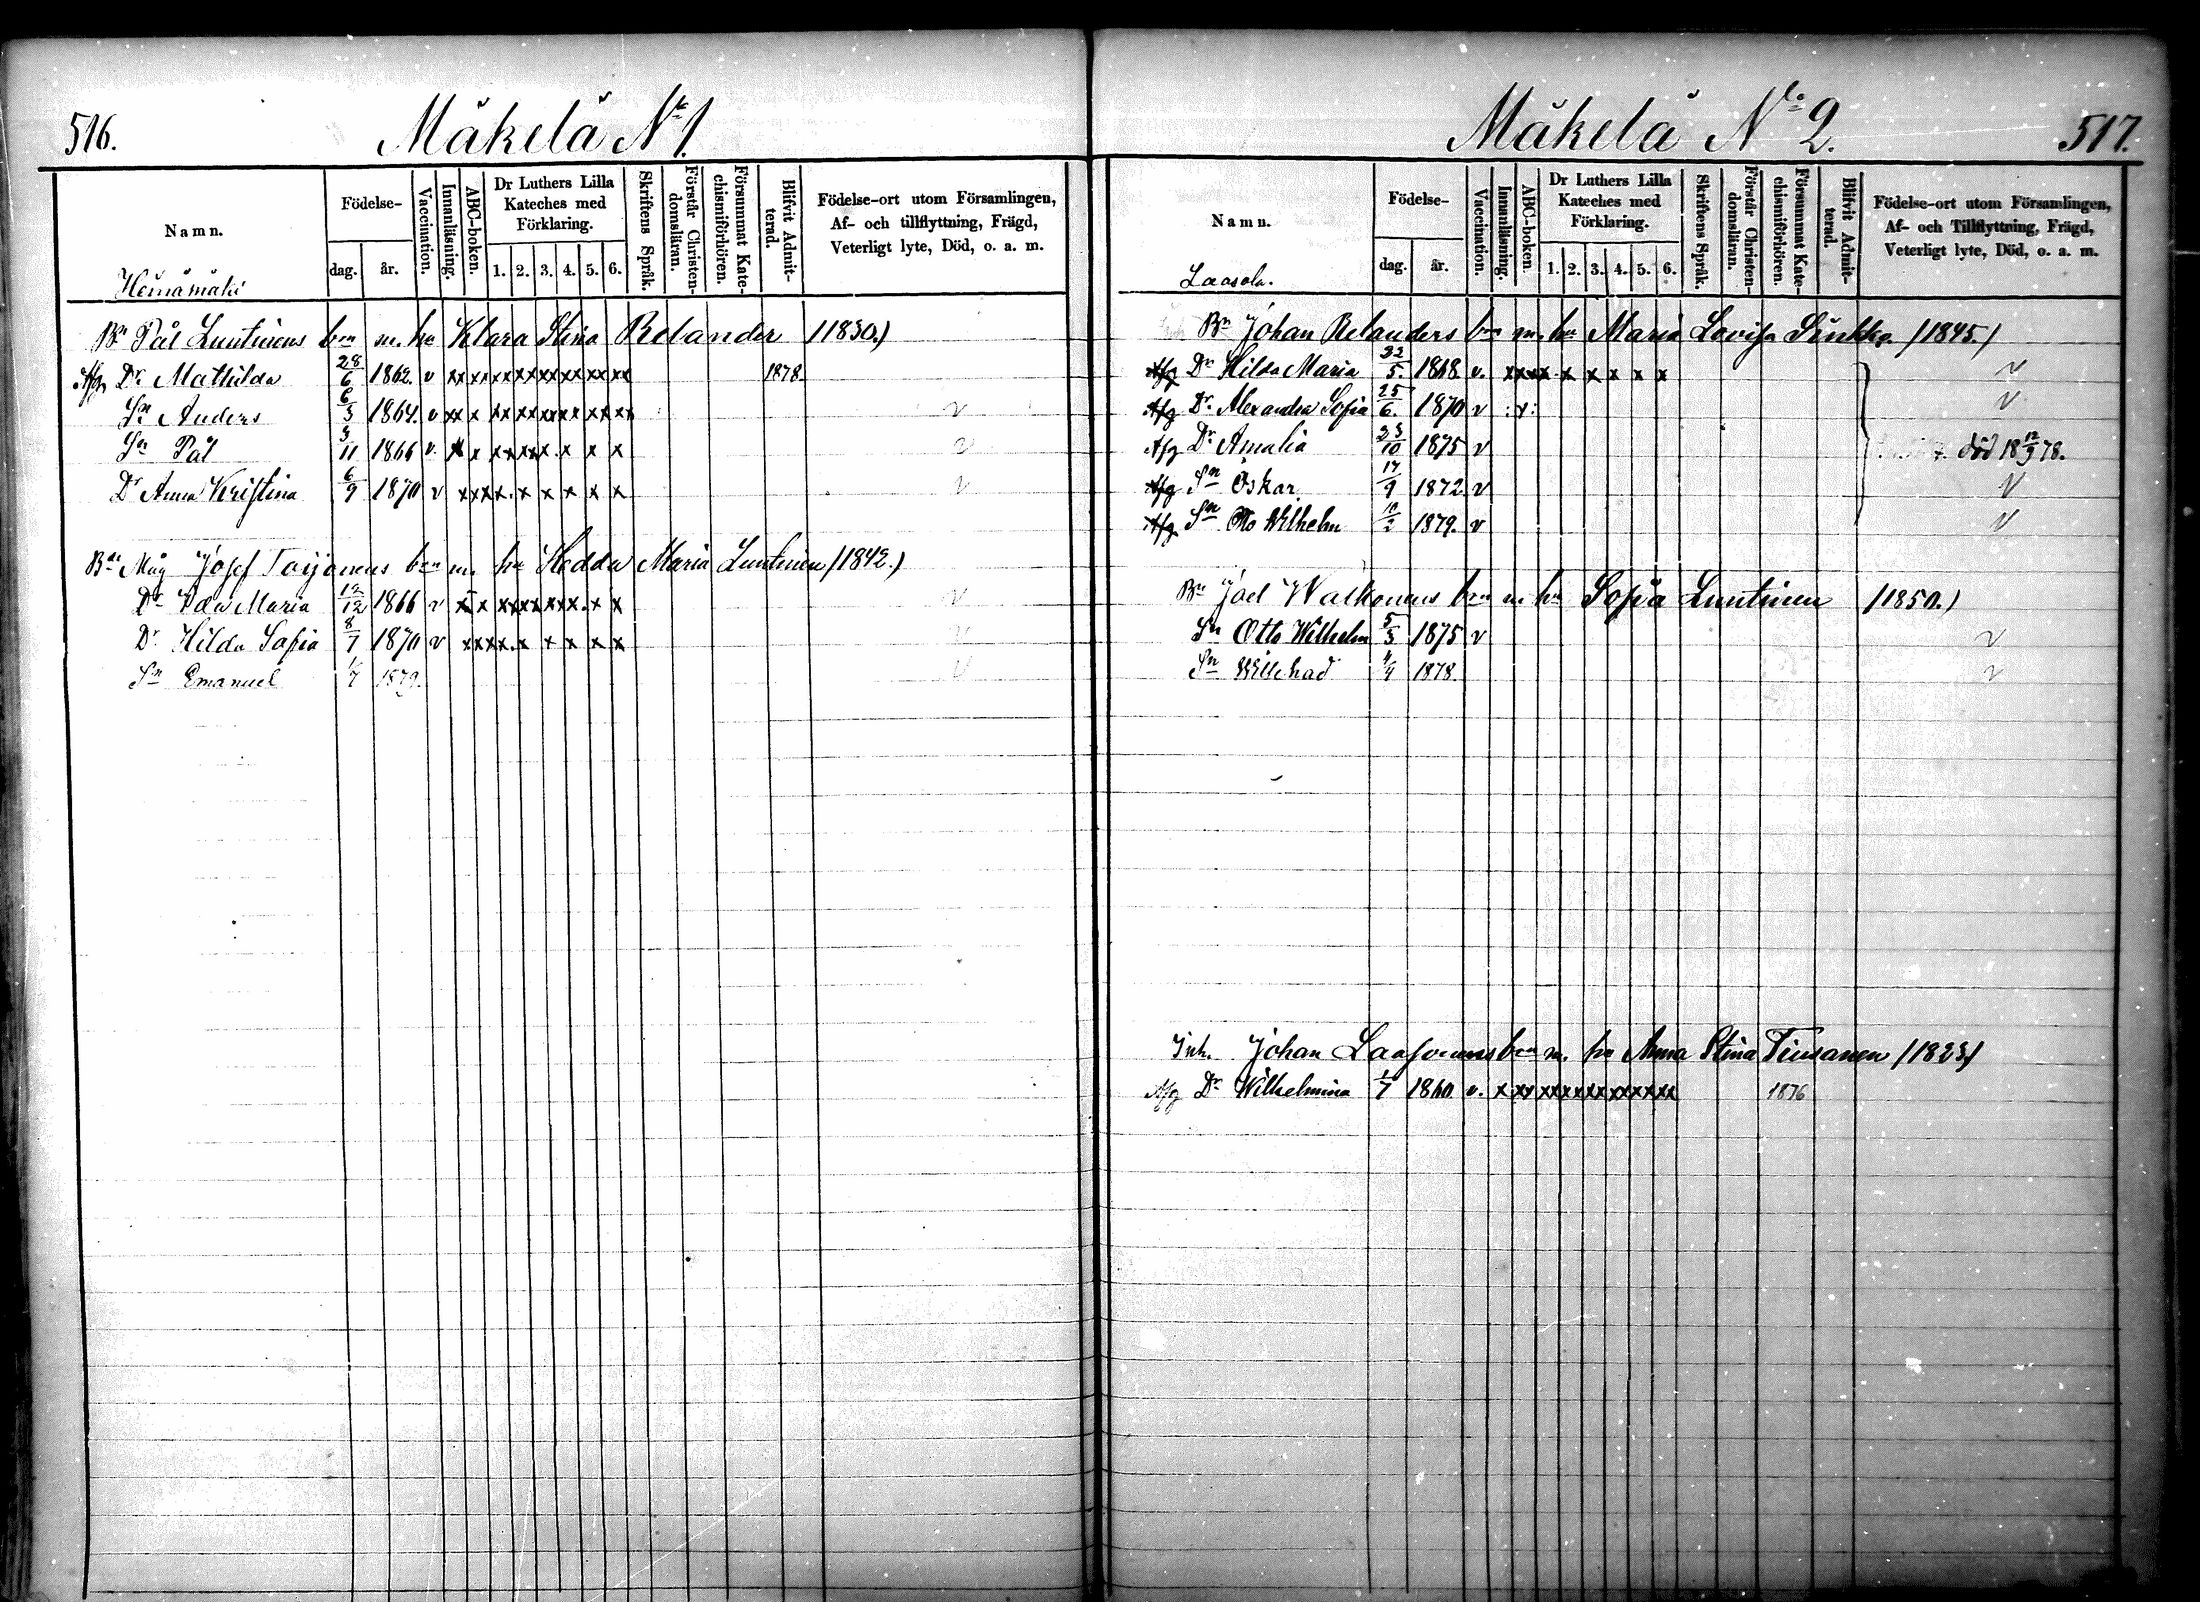 516.
Mäkelä No 1.
Namn.
Födelse-
dag.
år.
Vaccination.
Innanläsning.
ABC-boken.
Dr Luthers Lilla Kateches med Förklaring.
1. 2. 3. 4. 5. 6.
Skriftens Språk.
Förstår Christen-domsläran.
Försummat Kate-chismiförhören.
Blifvit Admit-terad.
Födelse-ort utom Församlingen,
Af- och tillflyttning, Frägd,
Veterligt lyte, Död, o. a. m.
Heinämäki
Bn Pål Luntinens bn m. ha Klara Stina Relander /1830.)
Afg Dr Mathilda 28/6 1862. v xx xx xx xx xx xx xx xx 1878.
Sn Anders 6/3 1864. v xx x xx xx xx xx xx xx v
Sn Pål 3/11 1866 v. x x xx xx x. x x x v
Dr Anna Kristina 6/9 1870 v xx xx. x x x x x v
Bn Måg Josef Toijonens bn m. ha Hedda Maria Luntinen /1842.)
Dr Ida Maria 12/12 1866 v x x xx xx xx x. x x v
Dr Hilda Sofia 8/7 1870 v xx xx. x x x x x v
Sn Emanuel 1879. v
517.
Mäkelä No 2.
Namn.
Födelse-
dag.
år.
Vaccination.
Innanläsning.
ABC-boken.
Dr Luthers Lilla Kateches med Förklaring.
1. 2. 3. 4. 5. 6.
Skriftens Språk.
Förstår Christen-domsläran.
Försummat Kate-chismiförhören.
Blifvit Admit-terad.
Födelse-ort utom Församlingen,
Af- och Tillflyttning, Frägd,
Veterligt lyte, Död, o. a. m.
Laasola.
Bn Johan Relanders bn m. ha Maria Lovisa Sinkko. /1845.)
Afg Dr Hilda Maria 1868 v. xx xx. x x x x x v
Afg Dr Alexandra Sofia 25/6. 1870 v :x: v
Afg Dr Amalia 23/10 1875 v död 18 12/9 78.
Afg Sn Oskar 17/9 1872 v v
Afg Sn Otto Wilhelm 10/2 1879. v v
Bn Joel Walkonens bn m. ha Sofia Luntinen /1850.)
Sn Otto Wilhelm 5/3 1875 v v
Sn Willehad 4/9 1878. v
Inh. Johan Laasonens bn m. ha Anna Stina Tiusanen /1823/
Afg Dr Wilhelmina 1/7 1860. v. x xx xx xx xx xx xx xx 1876